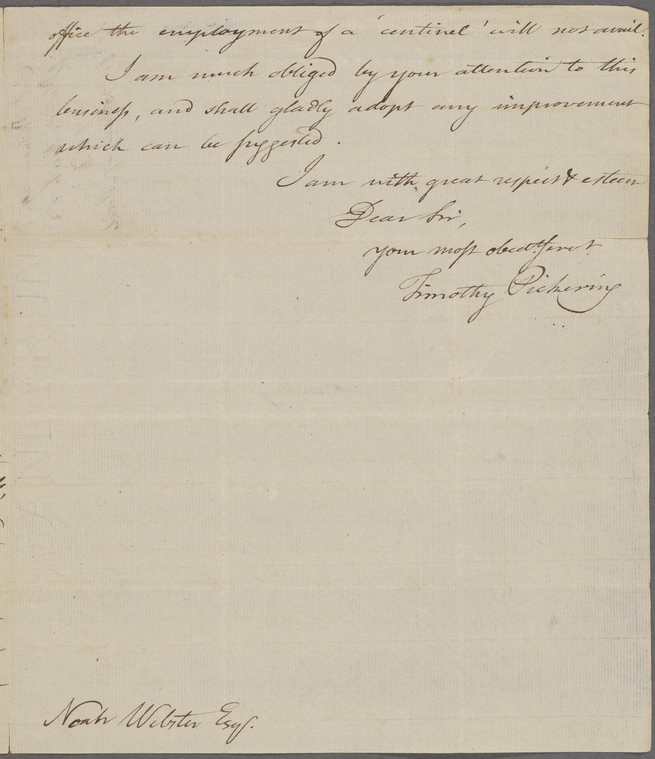 office the employment of a 'centinel' will not avail.
I am much obliged by your attention to this
business, and shall gladly adopt any improvement
which can be suggested.
I am with great respect & esteem
Dear Sir,
your most obedt. servt.
Timothy Pickering
Noah Webster Esqr.